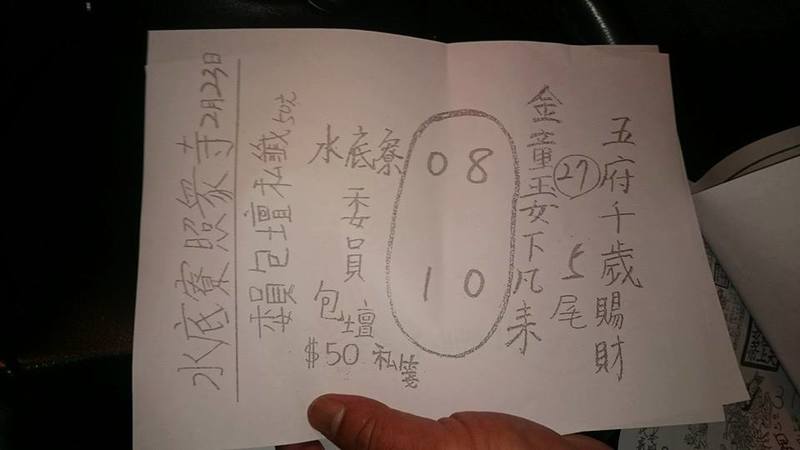 水底寮照眾寺2月23日
委員包壇私籤50元
五府千歲賜財
27
5尾
金童玉女下凡来
08
10
水底寮
委員
包壇
$50 私箋